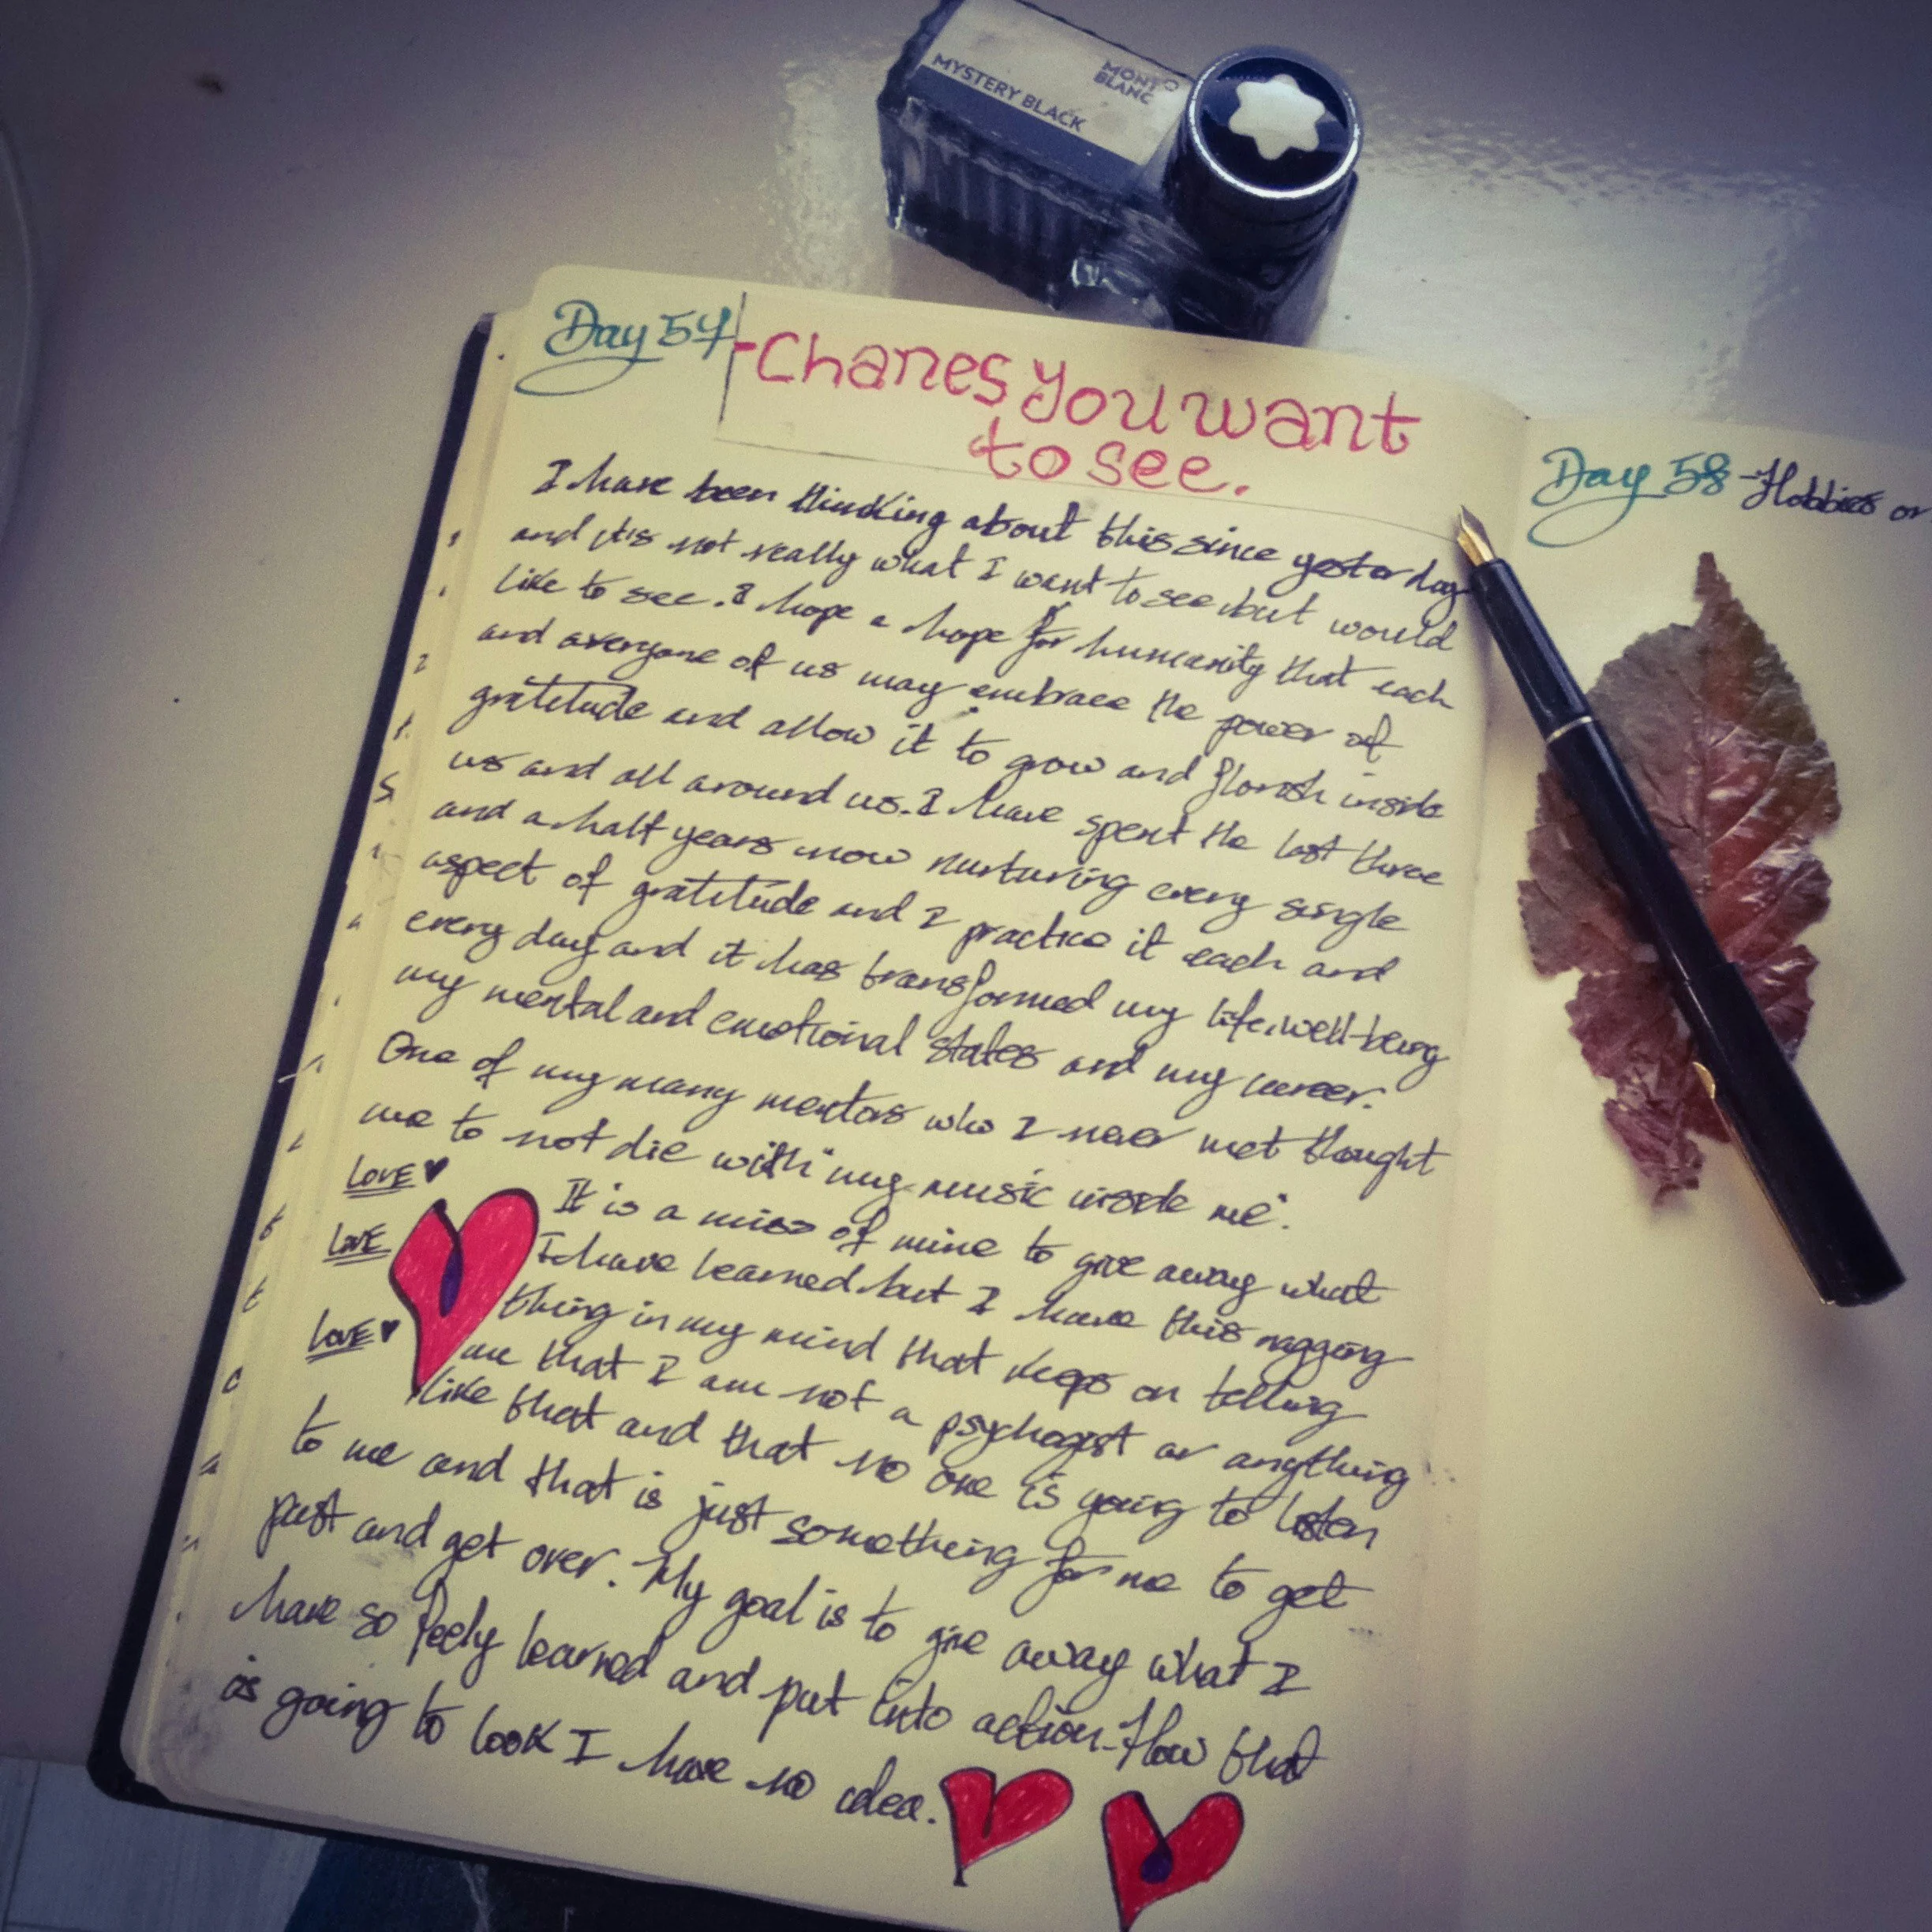 MYSTERY BLACK
MONT
BLANC
Day 57 - Chanes you want
to see.
I have been thinking about this since yesterday
and it's not really what I want to see but would
like to see. I hope a hope for humanity that each
and everyone of us may embrace the power of
gratitude and allow it to grow and florish inside
us and all around us. I have spent the last three
and a half years now nurturing every single
aspect of gratitude and I practice it each and
every day and it has transformed my life, well-being
my mental and emotional states and my career.
One of my many mentors who I never met thought
me to not die with "my music inside me".
LOVE ♥
It is a miss of mine to give away what
LOVE
I have learned but I have this nagging
thing in my mind that keeps on telling
LOVE ♥
me that I am not a psychogist or anything
like that and that no one is going to listen
to me and that is just something for me to get
past and get over. My goal is to give away what I
have so feely learned and put into action. How that
is going to look I have no idea.
Day 58 - Hobbies or